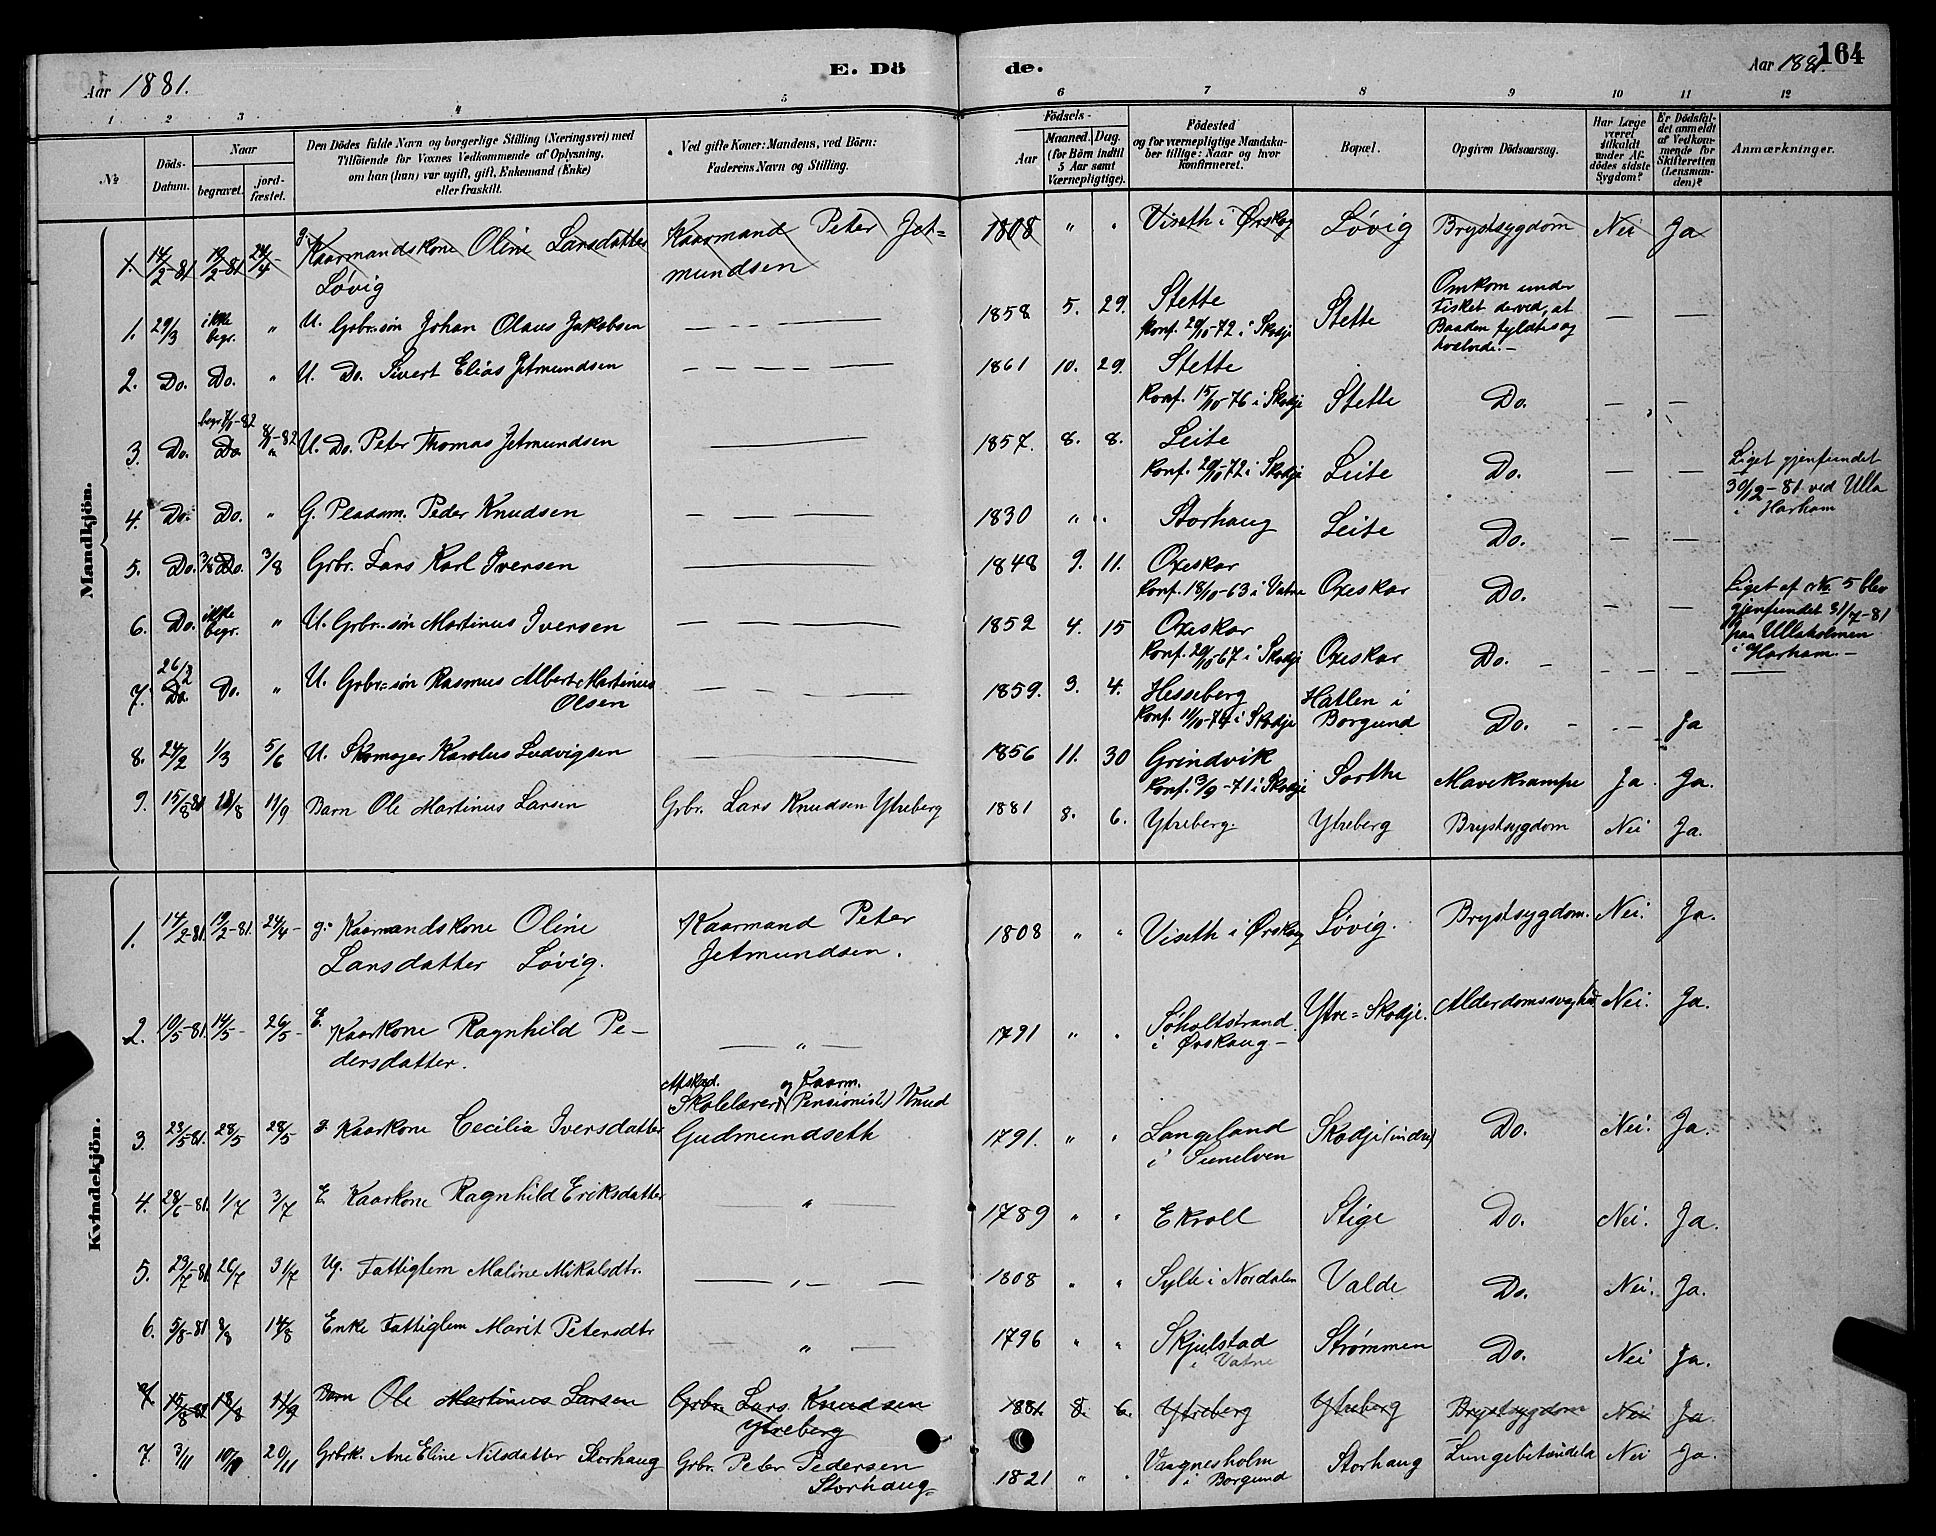 Aar 1881. E. Dö de. Aar 1881. 164
1 2 3 4 5 6 7 8 9 10 11 12
№ Döds-Datum. Naar begravet. jord-fæstet. Den Dödes fulde Navn og borgerlige Stilling (Næringsvei) med Tilföiende for Voxnes Vedkommende af Oplysning, om han (hun) var ugift, gift, Enkemand (Enke) eller fraskilt. Ved gifte Koner: Mandens, ved Börn: Faderens Navn og Stilling. Födsels- Aar Maaned. Dag. (for Börn indtil 5 Aar samt Værnepligtige). Födested og for værnepligtige Mandskaber tillige: Naar og hvor konfirmeret. Bopæl. Opgiven Dödsaarsag. Har Læge været tilkaldt under Afdödes sidste Sygdom? Er Dödsfaldet anmeldt af Vedkommende for Skifteretten (Lensmanden)? Anmærkninger.
Mandkjön.
1. 14/2-81 19/2-81 24/4- g. Kaarmandskone Oline Larsdatter Løvig Kaarmand Peter Jetmundsen 1808 " " Viseth i Ørskog Løvig Brystsygdom Nei Ja
1. 29/3 ikke begr. " U. Grbr.søn Johan Olaus Jakobsen — 1858 5. 29. Stette Konf. 20/10-72 i Skodje Stette Omkom under Fisket derved, at Baaden fyldtes og hvælvede.- — —
2. Do. Do. " U. Do. Sivert Elias Jetmundsen — 1861 10. 29. Stette Konf. 15/10-76 i Skodje Stette Do. — —
3. Do. begr. 7/1-82 Do. 8/1-82 " U. Do. Peter Thomas Jetmundsen — 1857. 8. 8. Leite Konf. 20/10-72 i Skodje Leite Do. — — Liget gjenfundet 30/12-81 ved Ulla i Harham
4. Do. Do. " G. Pladsm. Peder Knudsen — 1830 " " Storhaug Leite Do. — —
5. Do. 3/8 Do. 3/8 Grbr. Lars Karl Iversen — 1848 9. 11. Oxeskar Konf. 18/10-63 i Vatne Oxeskar Do. — — Liget af No 5 blev gjenfundet 31/7-81 paa Ullaholmen i Harham.-
6. Do. ikke begr. " U. Grbr.-søn Martinus Iversen — 1852 4. 15 Oxeskar Konf. 20/10-67 i Skodje Oxeskar Do. — —
7. 26/2 Do. Do. " U. Grbr=søn Rasmus Albert Martinus Olsen — 1859. 3. 4. Hesseberg Konf. 11/10-74 i Skodje Hatlen i Borgund Do. — Ja
8. 24/2 1/3 5/6 U. Skomager Karolus Ludvigsen — 1856 11. 30 Grindvik Konf. 3/9-71 i Skodje Sorthe Mavekrampe Ja. Ja.
9. 15/8 81 18/8 11/9 Barn Ole Martinus Larsen Grbr. Lars Knudsen Ytreberg 1881 8. 6. Ytreberg. Ytreberg Brystsygdom Nei Ja.
Kvindekjön.
1. 14/2 81. 19/2-81. 24/4- g. Kaarmandskone Oline Larsdatter Løvig. Kaarmand Peter Jetmundsen. 1808 " " Viseth i Ørskog Løvig. Brystsygdom. Nei. Ja.
2. 10/5-81. 14/5- 26/5- E. Kaarkone Ragnhild Pedersdatter. — " — 1791 " " Søholtstrand i Ørskaug- Ytre=Skodje. Alderdomssvaghed Nei. Ja.
3. 23/5 81. 28/5 28/5 g. Kaarkone Cecilia Iversdatter Afsked. Skolelærer og Kaarm. (Pensionist) Knud Gudmundseth 1791. " " Langeland i Sunelven Skodje (indre) Do. Nei. Ja.
4. 28/6-81. 1/7 3/7 E. Kaarkone Ragnhild Eriksdatter — " — 1789 " " Ekroll Stige Do. Nei. Ja.
5. 23/7-81. 26/7 31/7 Ug. Fattiglem Maline Mikalsdtr. — " — 1808 " " Sylte i Nordalen Valde Do. Nei. Ja.
6. 5/8-81 8/8 14/8 Enke Fattiglem Marit Petersdtr — " — 1796 " " Skjelstad i Vatne Strømmen Do. Nei Ja.
15/8 81. 18/8 11/9 Barn Ole Martinus Larsen Grbr. Lars Knudsen Ytreberg 1881. 8. 6. Ytreberg Ytreberg Brystsygdom Nei Ja.
7. 3/11 10/11 20/11 Grbrk. Ane Eline Nilsdatter Storhaug Grbr. Peter Pedersen Storhaug= 1821 " " Vaagnesholm i Borgund Storhaug Lungebetændelse Nei Ja.